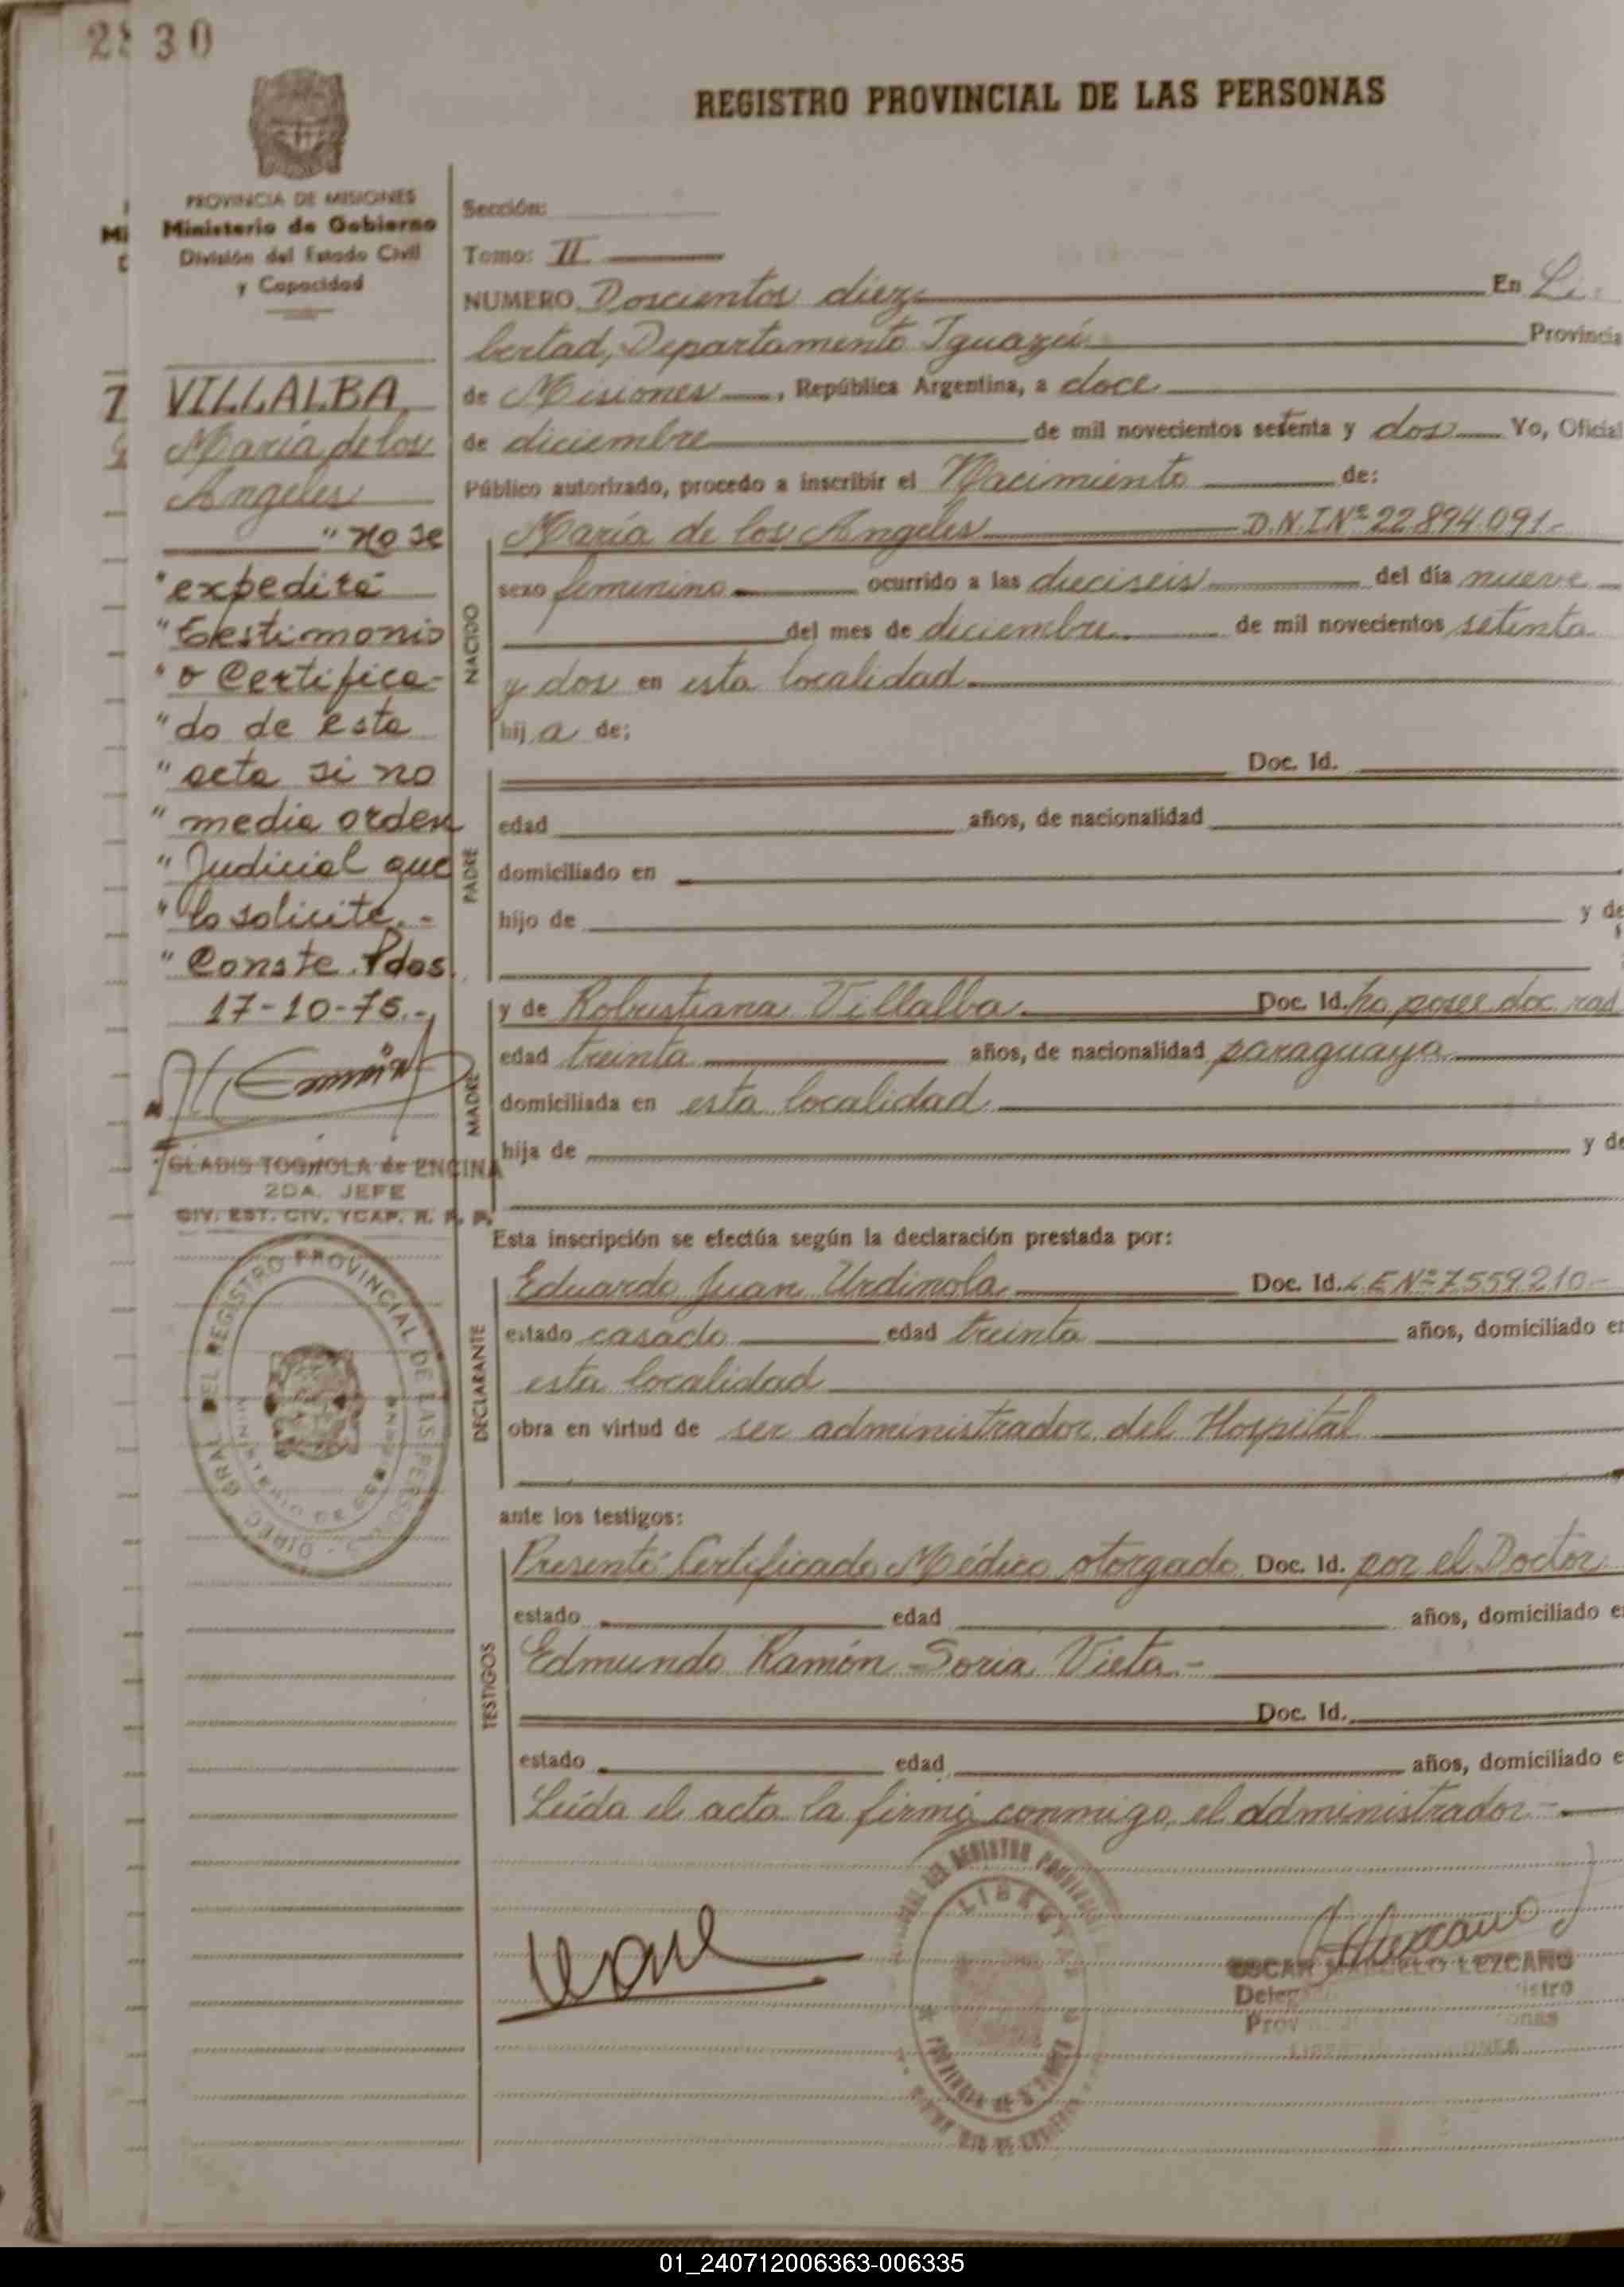 30
REGISTRO PROVINCIAL DE LAS PERSONAS
PROVINCIA DE MISIONES
Ministerio de Gobierno
División del Estado Civil
y Capacidad
VILLALBA
María de los
Angeles
"No se
"expedirá
"Testimonio
"o Certifica-
"do de esta
"acta si no
"media orden
"Judicial que
"lo solicite.-
"Conste. Pdas.
17-10-75.-
GLADIS TOGNOLA de ENCINA
2DA. JEFE
DIV. EST. CIV. YCAP. R. P. P.
DIREC. GRAL. DEL REGISTRO PROVINCIAL DE LAS PERSONAS
MINISTERIO DE
Sección:
Tomo: II
NUMERO Doscientos diez En Li-
bertad, Departamento Iguazú Provincia
de Misiones, República Argentina, a doce
de diciembre de mil novecientos setenta y dos Yo, Oficial
Público autorizado, procedo a inscribir el Nacimiento de:
NACIDO
María de los Angeles D.N.I Nº 22.894.091.-
sexo femenino ocurrido a las dieciseis del día nueve
del mes de diciembre de mil novecientos setenta
y dos en esta localidad
hij a de;
PADRE
Doc. Id.
edad años, de nacionalidad
domiciliado en
hijo de y de
MADRE
y de Robustiana Villalba Doc. Id. no posee doc. rad
edad treinta años, de nacionalidad paraguaya
domiciliada en esta localidad
hija de y de
Esta inscripción se efectúa según la declaración prestada por:
DECLARANTE
Eduardo Juan Urdinola Doc. Id. L E Nº 7.559.210-
estado casado edad treinta años, domiciliado en
esta localidad
obra en virtud de ser administrador del Hospital
ante los testigos:
TESTIGOS
Presentó Certificado Médico otorgado Doc. Id. por el Doctor
estado edad años, domiciliado en
Edmundo Ramón Soria Vieta.-
Doc. Id.
estado edad años, domiciliado e
Leída el acta la firma conmigo el administrador-
OSCAR MARCELO LEZCANO
01_240712006363-006335